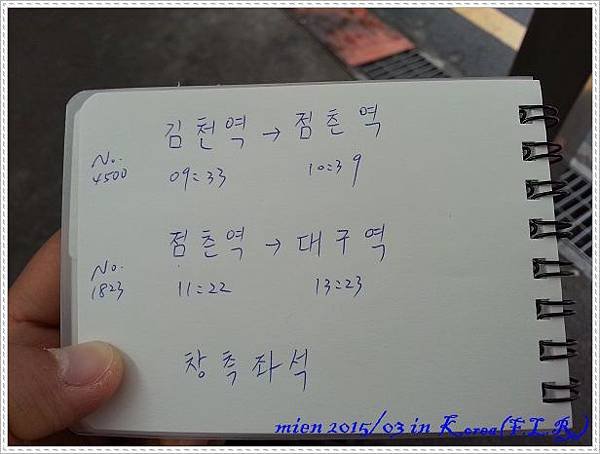 김천역 → 점촌역
No. 4500 09:33 10:39
점촌역 → 대구역
No. 1823 11:22 13:23
창측좌석
mien 2015/03 in Korea(F.I.R.)